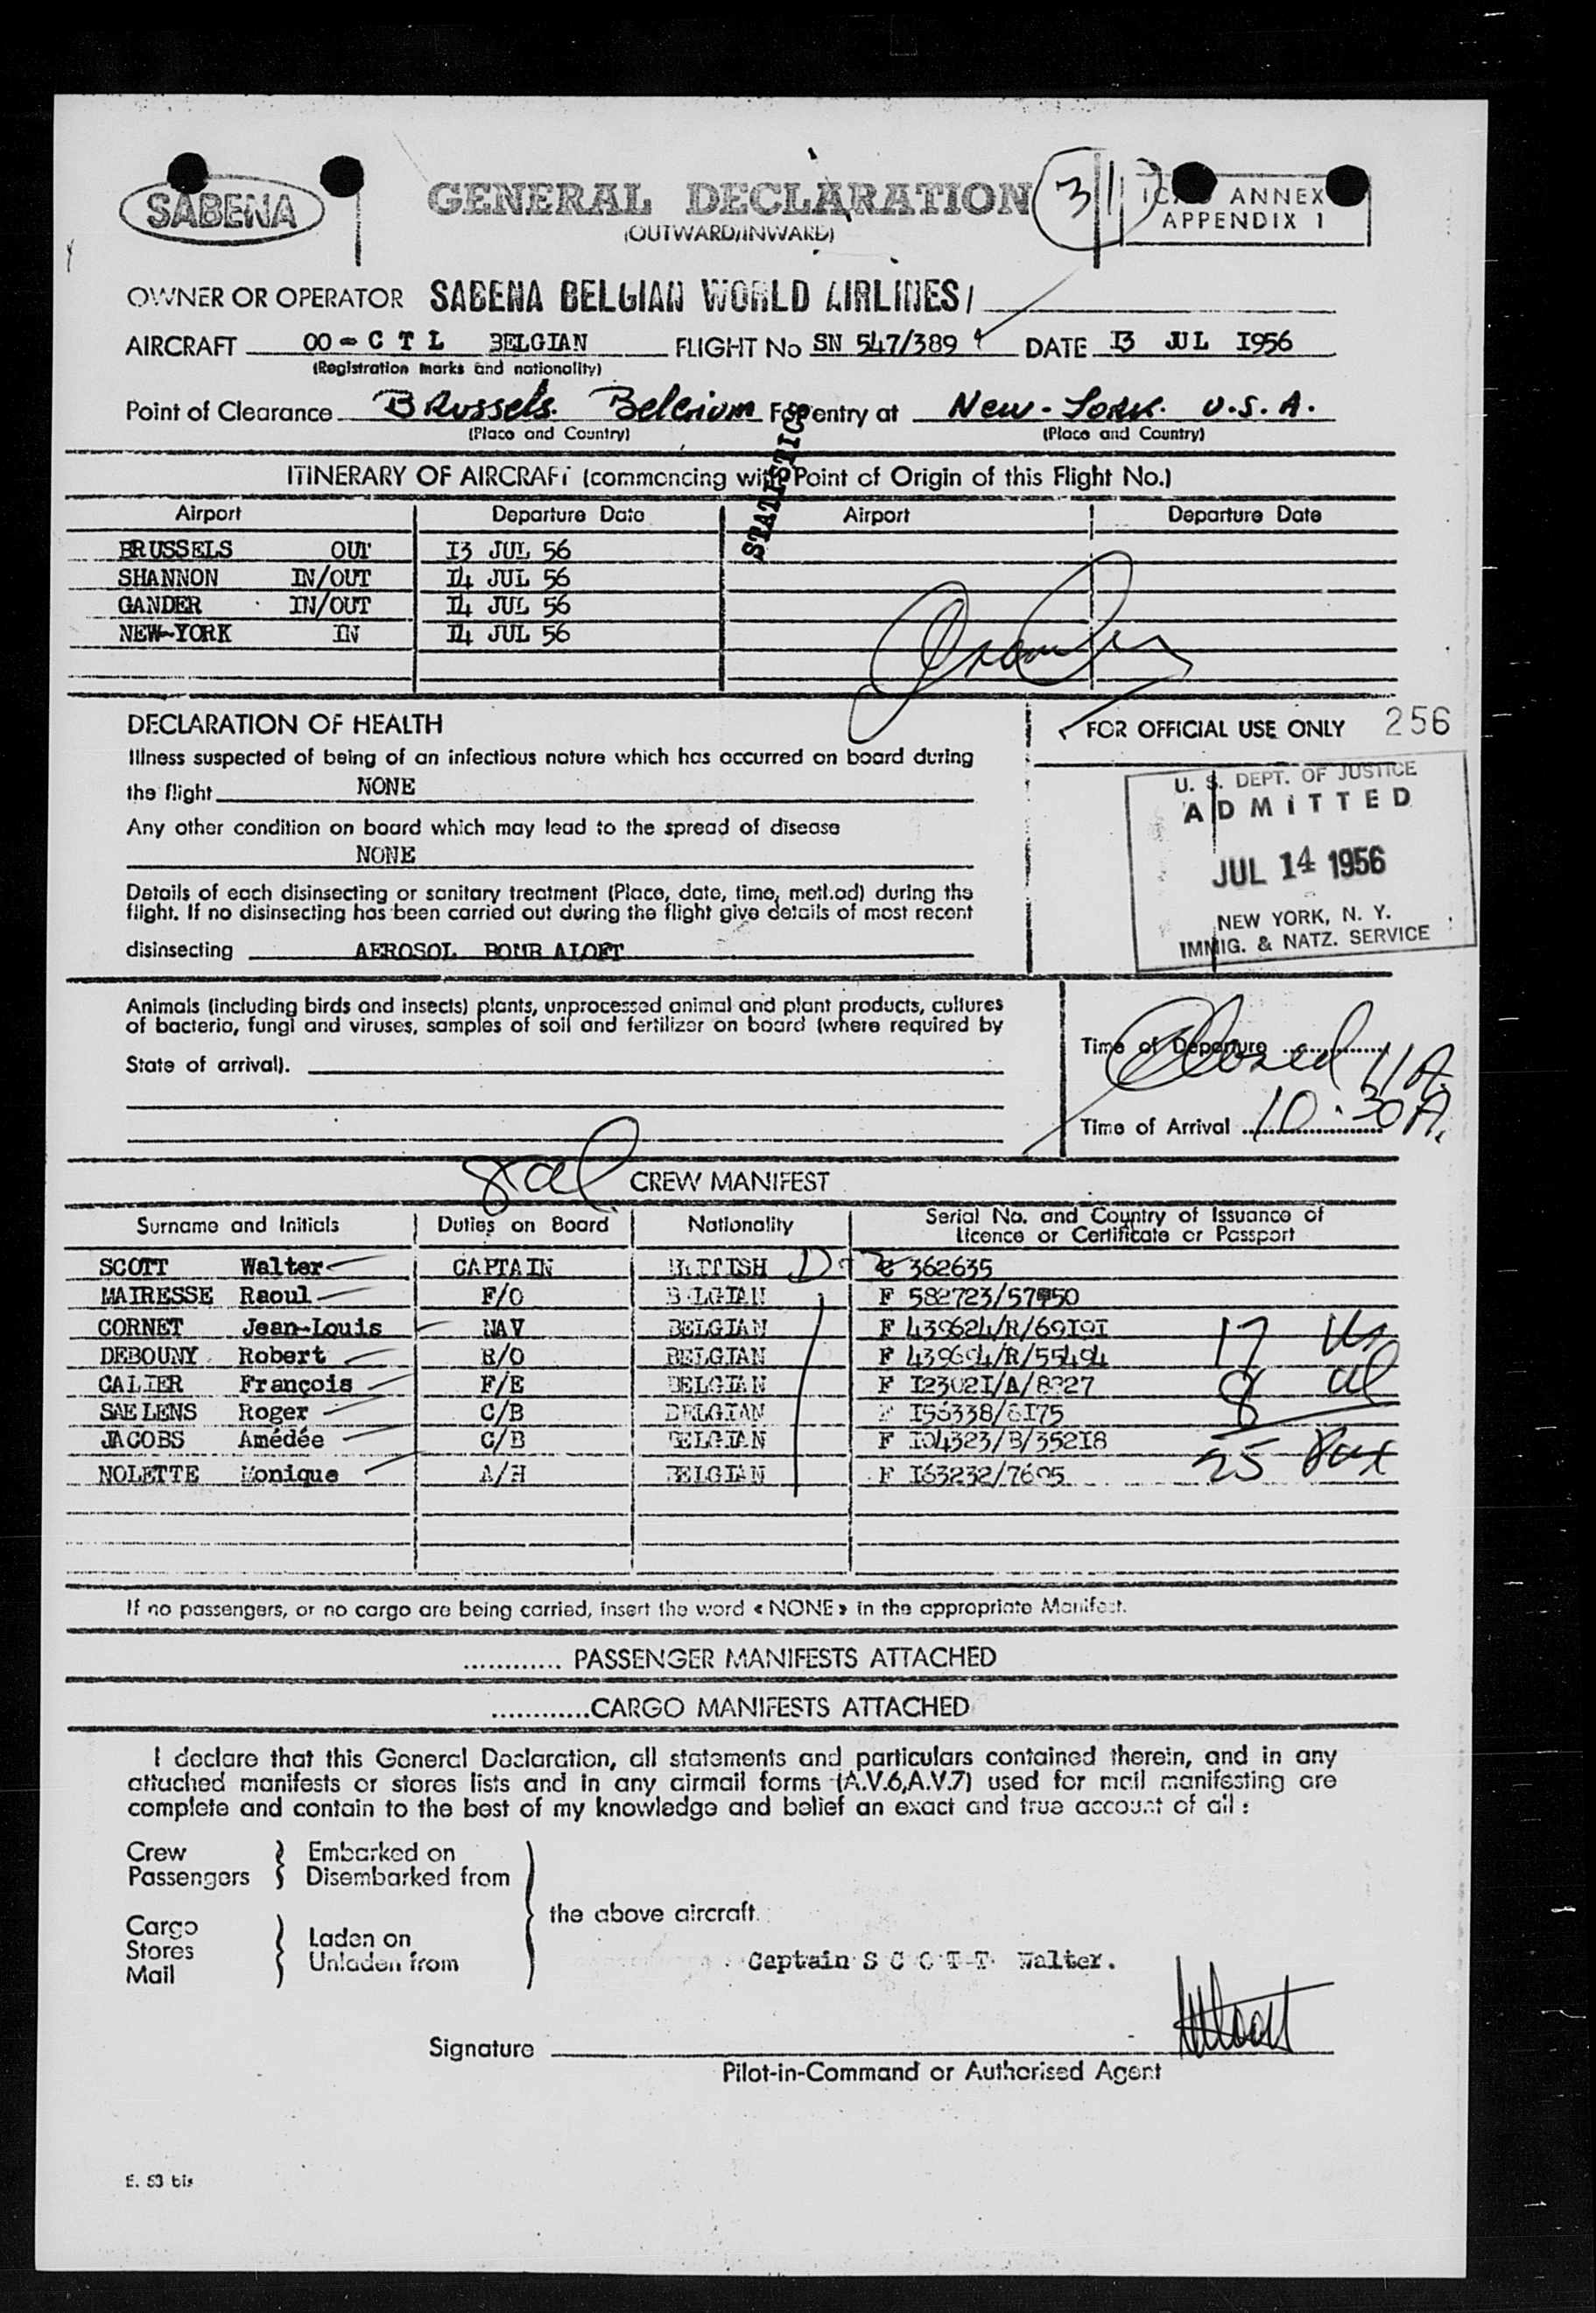 SABENA
GENERAL DECLARATION
(OUTWARD/INWARD)
31
ANNEX
APPENDIX 1
OWNER OR OPERATOR SABENA BELGIAN WORLD AIRLINES/
AIRCRAFT OO-C T L BELGIAN FLIGHT No SN 547/389 DATE I3 JUL I956
(Registration marks and nationality)
Point of Clearance Brussels. Belgium For entry at New-York. U.S.A.
(Place and Country) (Place and Country)
STATISTICS
ITINERARY OF AIRCRAFT (commencing with Point of Origin of this Flight No.)
Airport Departure Date Airport Departure Date
BRUSSELS OUT I3 JUL 56
SHANNON IN/OUT I4 JUL 56
GANDER IN/OUT I4 JUL 56
NEW-YORK IN I4 JUL 56
DECLARATION OF HEALTH
Illness suspected of being of an infectious nature which has occurred on board during
the flight NONE
Any other condition on board which may lead to the spread of disease
NONE
Details of each disinsecting or sanitary treatment (Place, date, time, method) during the
flight. If no disinsecting has been carried out during the flight give details of most recent
disinsecting AEROSOL BOMB ALOFT
FOR OFFICIAL USE ONLY 256
U. S. DEPT. OF JUSTICE
ADMITTED
JUL 14 1956
NEW YORK, N. Y.
IMMIG. & NATZ. SERVICE
Animals (including birds and insects) plants, unprocessed animal and plant products, cultures
of bacteria, fungi and viruses, samples of soil and fertilizer on board (where required by
State of arrival).
Time of Departure Closed 11A.
Time of Arrival 10:30A.
8 al
CREW MANIFEST
Surname and Initials Duties on Board Nationality Serial No. and Country of Issuance of
Licence or Certificate or Passport
SCOTT Walter CAPTAIN BRITISH C 362635
MAIRESSE Raoul F/O BELGIAN F 582723/57950
CORNET Jean-Louis NAV BELGIAN F 439624/R/69I9I
DEBOUNY Robert R/O BELGIAN F 439694/R/55494
CALIER François F/E BELGIAN F I2302I/A/8327
SAELENS Roger C/B BELGIAN F I56338/6I75
JACOBS Amédée C/B BELGIAN F I04323/B/352I8
NOLETTE Monique A/H BELGIAN F I63232/7695
17 us
8 al
25 Pax
If no passengers, or no cargo are being carried, insert the word « NONE » in the appropriate Manifest.
............ PASSENGER MANIFESTS ATTACHED
............CARGO MANIFESTS ATTACHED
I declare that this General Declaration, all statements and particulars contained therein, and in any
attached manifests or stores lists and in any airmail forms (A.V.6,A.V.7) used for mail manifesting are
complete and contain to the best of my knowledge and belief an exact and true account of all :
Crew Embarked on
Passengers Disembarked from
the above aircraft.
Cargo Laden on
Stores Unladen from
Mail
Captain S C O T T Walter.
Signature
Pilot-in-Command or Authorised Agent
E. 53 bis